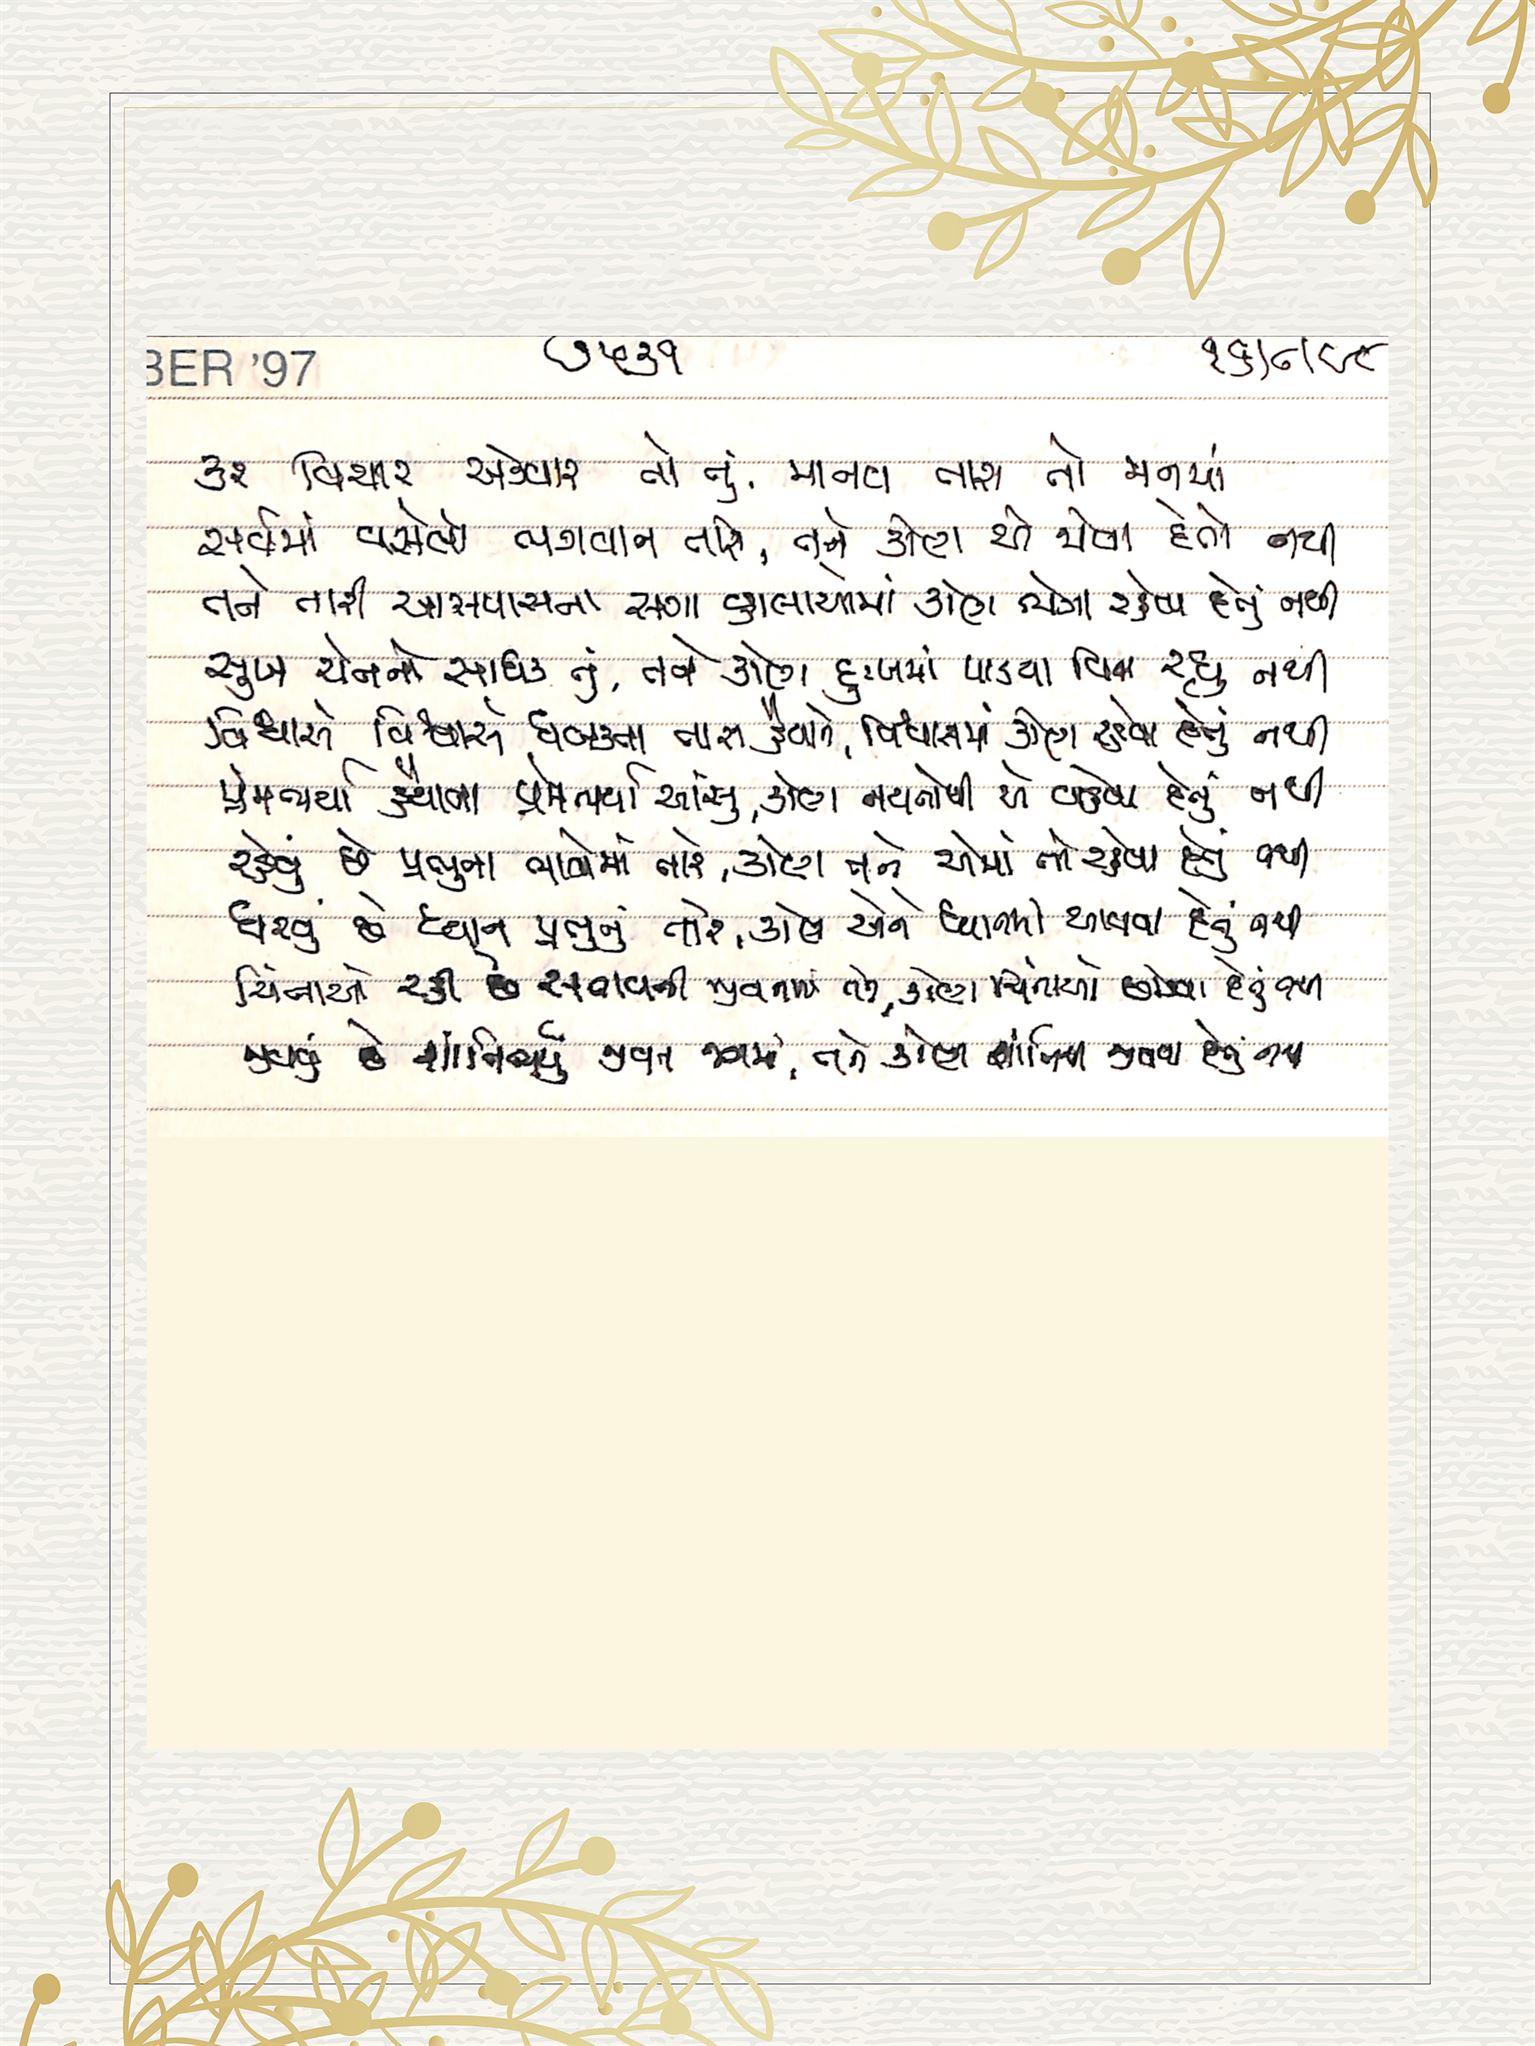 BER '97 ૭૫૩૧ ૧૬/૮/૯૮
કર વિચાર એકવાર તો તું, માનવ તારા તો મનમાં
સર્વમાં વસેલો ભગવાન તારો, તને કોણ જોવા દેતો નથી
તને તારી આસપાસના સગા વ્હાલાઓમાં કોણ ભેગા રહેવા દેતું નથી
સુખ ચેનનો સાધક તું, તને કોણ દુઃખમાં પાડયા વિના રહ્યું નથી
વિશ્વાસે વિશ્વાસે ધબકતા તારા હૈયાને, વિશ્વાસમાં કોણ રહેવા દેતું નથી
પ્રેમભર્યા હૈયાના પ્રેમભર્યા આંસુ, કોણ નયનોથી વહેવા દેતું નથી
રહેવું છે પ્રભુના ભાવોમાં તારે, કોણ તને એમાં તો રહેવા દેતું નથી
ધરવું છે ધ્યાન પ્રભુનું તારે, કોણ એને ધ્યાનમાં આવવા દેતું નથી
ચિંતાઓ રહી છે સતાવતી જીવનમાં તને, કોણ ચિંતાઓ છોડવા દેતું નથી
જીવવું છે શાંતિભર્યું જીવન જગમાં, તને કોણ શાંતિથી જીવવા દેતું નથી